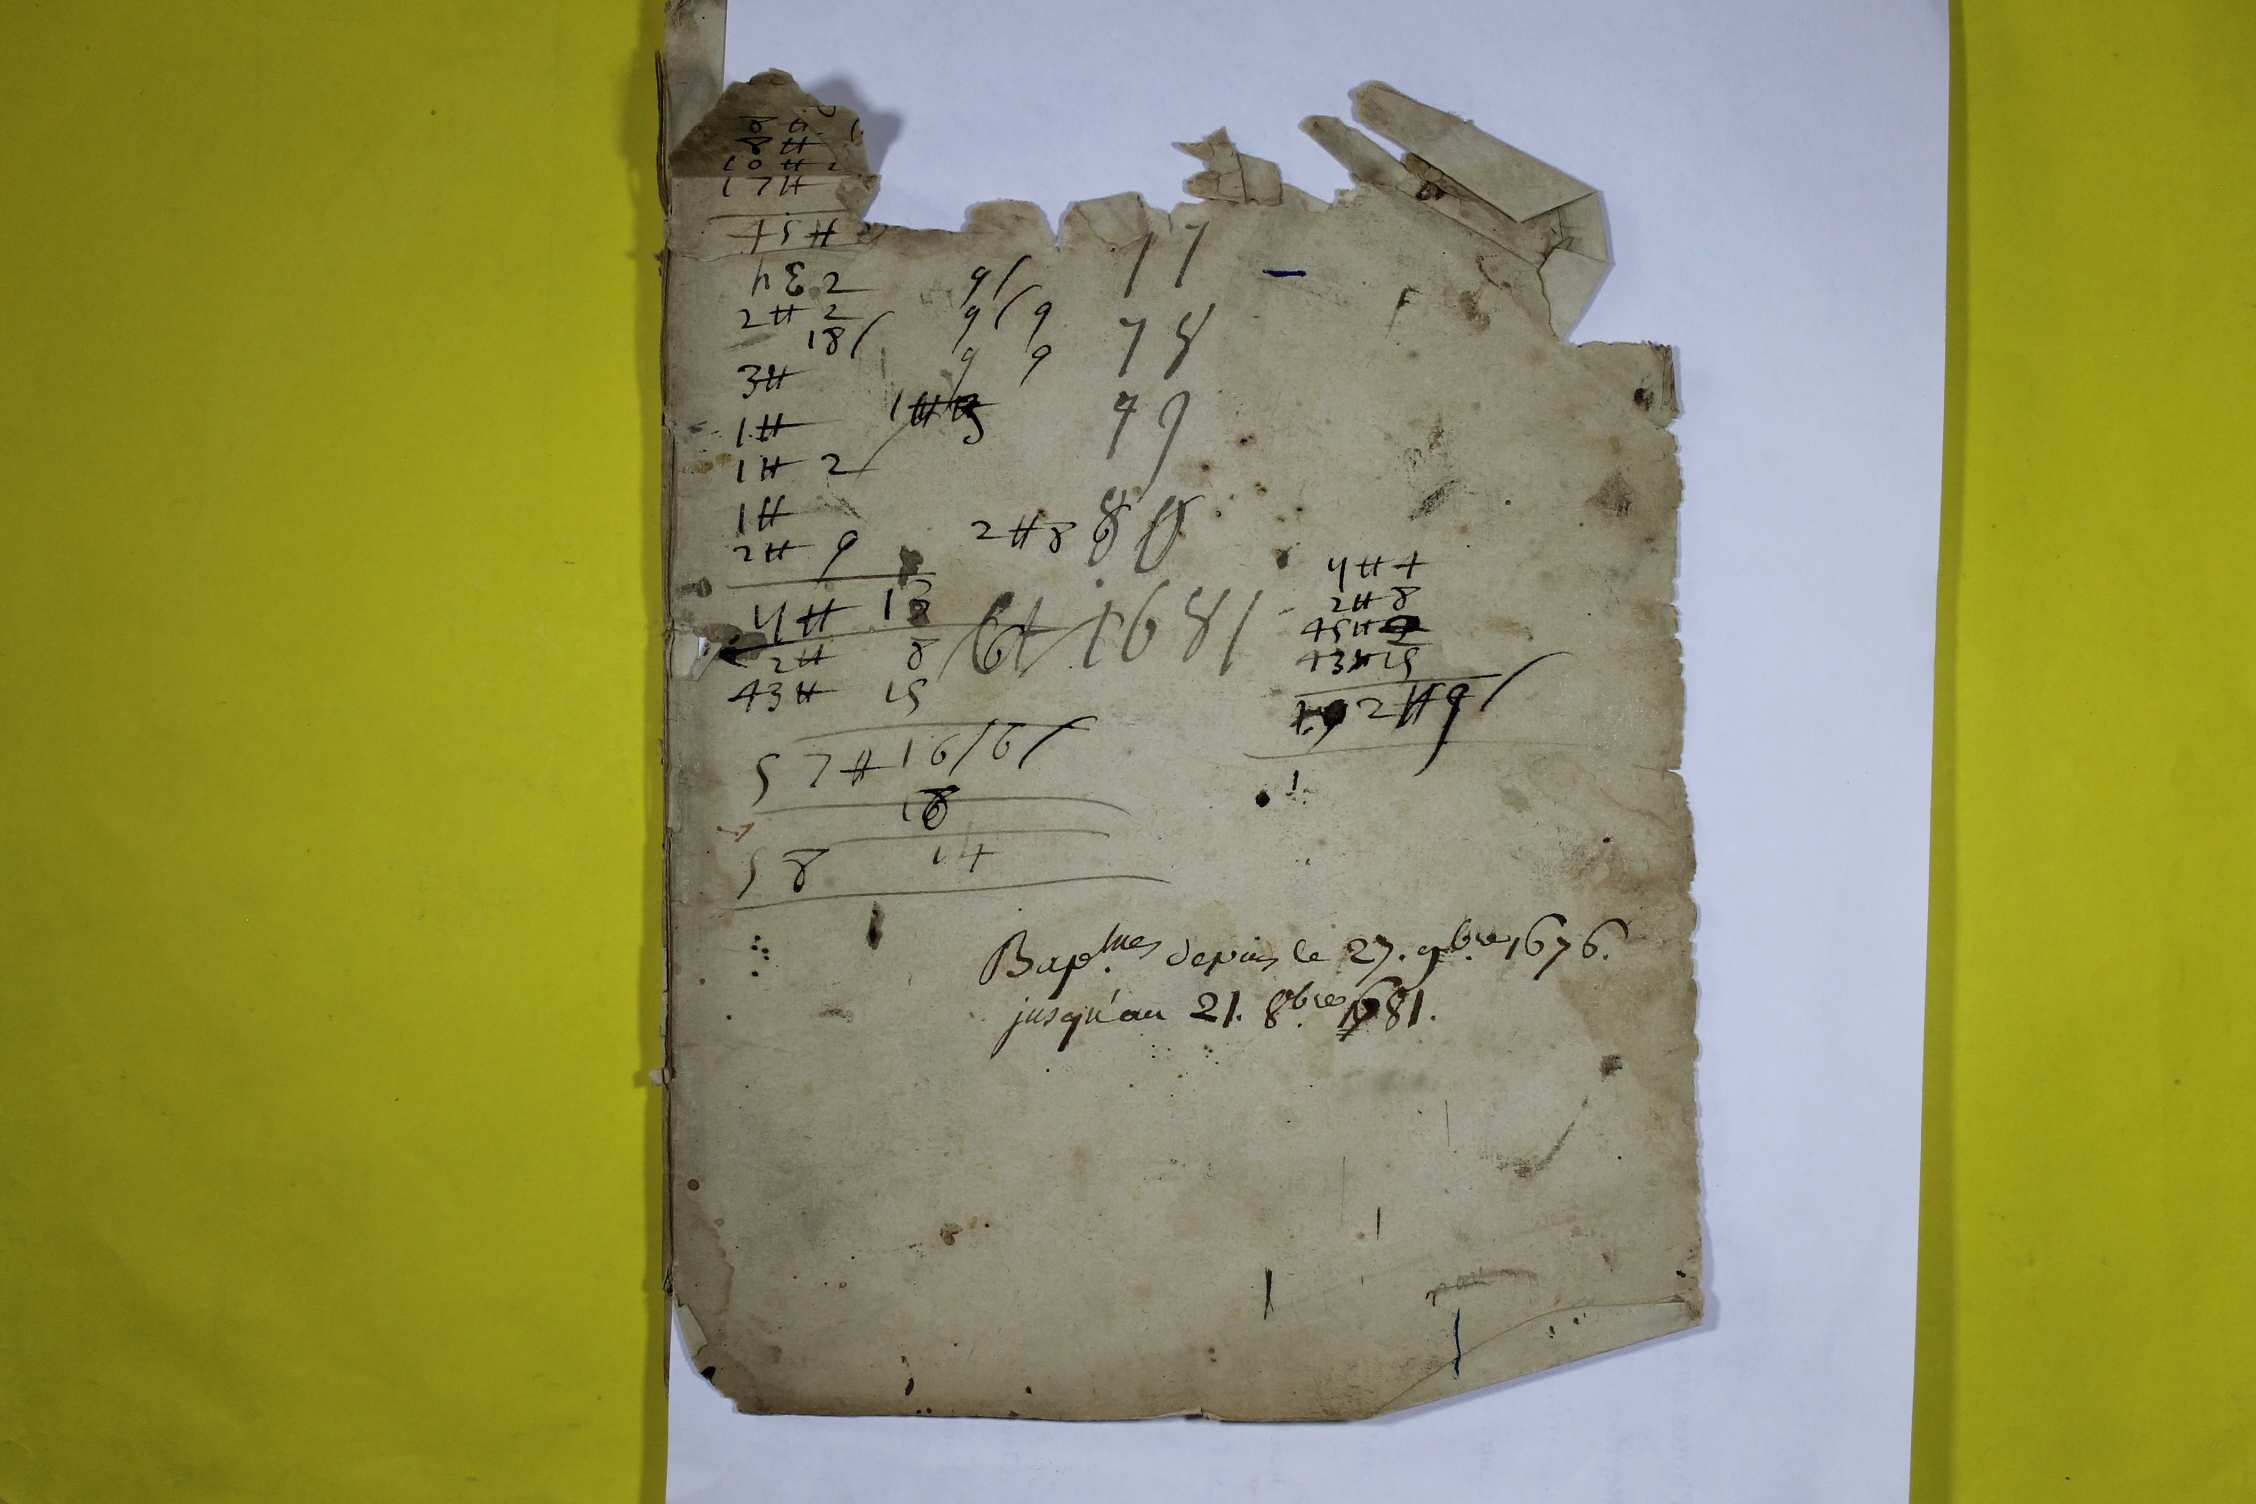 8 #
8 #
10 # 2
17 #
45 #
2 # 2
18
3 #
1 #
1 # 2
1 #
2 # 9
4 # 13
2 # 8
43 # 15
57 # 16
18
58 14
9
9 9
9 9
1 #
2 # 8
77
78
79
80
et 1681
4 # 4
2 # 8
45 #
43 # 15
Bap.mes depuis le 27. 9b.re 1676.
jusqu'au 21. 8b.re 1681.